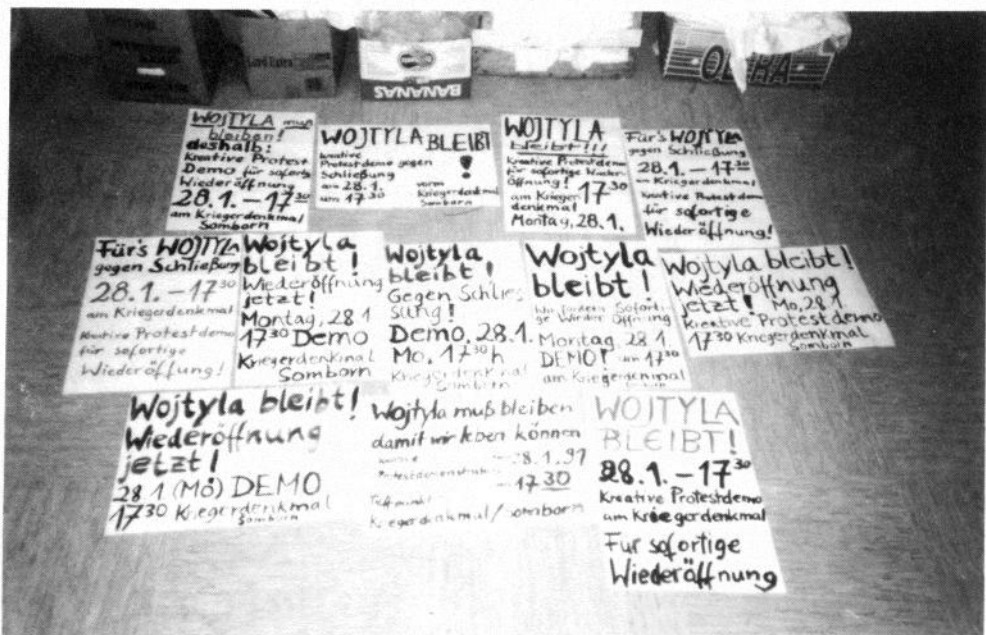 BANANAS
OKRA
WOJTYLA muß
bleiben!
deshalb:
Kreative Protest
Demo für sofortige
Wiederöffnung
28.1. – 17³⁰
am Kriegerdenkmal
Somborn
WOJTYLA BLEIBT
!
kreative
Protestdemo gegen
Schließung
am 28.1.
um 17³⁰
vorm
Kriegerdenkmal
Somborn
WOJTYLA
bleibt!!!
Kreative Protestdemo
für sofortige Wieder-
öffnung!
17³⁰
am Krieger
denkmal
Montag, 28.1.
Für's WOJTYLA
gegen Schließung
28.1. – 17³⁰
am Kriegerdenkmal
Kreative Protestdemo
für sofortige
Wiederöffnung!
Für's WOJTYLA
gegen Schließung
28.1. – 17³⁰
am Kriegerdenkmal
Kreative Protestdemo
für sofortige
Wiederöffung!
Wojtyla
bleibt!
Wiederöffnung
jetzt!
Montag, 28.1
17³⁰ Demo
Kriegerdenkmal
Somborn
Wojtyla
bleibt!
Gegen Schlies
sung!
Demo, 28.1.
Mo. 17³⁰h
Kriegerdenkmal
Somborn
Wojtyla
bleibt!
Wir fordern Soforti-
ge Wieder Öffnung
Montag, 28.1.
DEMO! um 17³⁰
am Kriegerdenkmal
Somborn
Wojtyla bleibt!
Wiederöffnung
jetzt! Mo, 28.1
Kreative Protestdemo
17³⁰ Kriegerdenkmal
Somborn
Wojtyla bleibt!
Wiederöffnung
jetzt!
28.1 (Mo) DEMO
17³⁰ Kriegerdenkmal
Somborn
Wojtyla muß bleiben
damit wir leben können
28.1.91
Protestdemonstration
17 30
Treffpunkt
Kriegerdenkmal/Somborn
WOJTYLA
BLEIBT!
28.1. – 17³⁰
Kreative Protestdemo
am Kriegerdenkmal
Für sofortige
Wiederöffnung